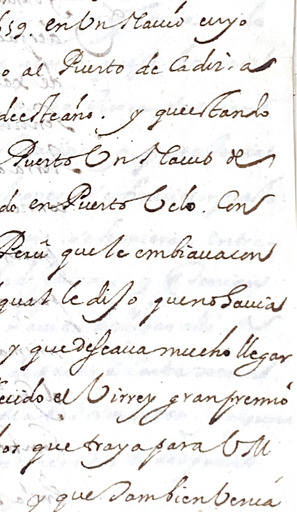 659. en Un Nauio cuyo
o al Puerto de Cadiz. a
deesteaño. y queestando
Puerto Un Nauio de
do en Puerto Velo. Con
Peru que le embiauacon
qual le dijo queno hauia
y que deseaua mucho llegar
cido el Virrey gran premio
lor que traya para VM
y que tambien Venia